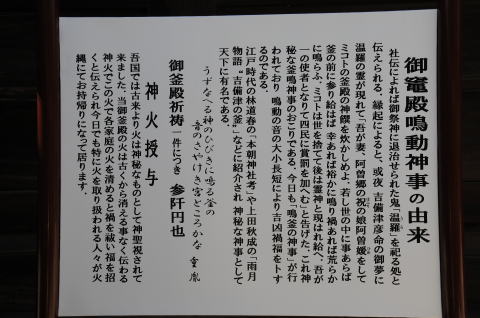 御竈殿鳴動神事の由来
社伝によれば御祭神に退治せられた鬼“温羅”を祀る処と
伝えられる。縁起によると、或夜 吉備津彦命の御夢に
温羅の霊が現れて「吾が妻、阿曽郷の祝の娘阿曽媛をして
ミコトの釜殿の神饌を炊かしめよ。若し世の中に事あらば
釜の前に参り給はば 幸あれば裕かに鳴り禍あれば荒らか
に鳴らふ。ミコトは世を捨てて後は霊神と現はれ給へ。吾が
一の使者となりて四民に賞罰を加へむ」と告げた。これ神
秘な釜鳴神事のおこりである。今日も“鳴釜の神事”が行
われており 鳴動の音の大小長短により吉凶禍福を卜す
るのである。
江戸時代の林道春の「本朝神社考」や上田秋成の「雨月
物語」“吉備津の釜”などに紹介され 神秘な神事として
天下に有名である。
うずなへる神のひびきに鳴る釜の
音のさやけき宮どころかな 重胤
御釜殿祈祷 一件につき 参阡円也
神火授与
吾国では古来より火は神秘なものとして神聖視されて
来ました。当御釜殿の火は古くから消える事なく伝わる
神火でこの火で各家庭の火を清めると禍を祓い福を招
くと伝えられ今日でも特に火を取り扱われる人々が火
縄にてお持帰りになって居ります。